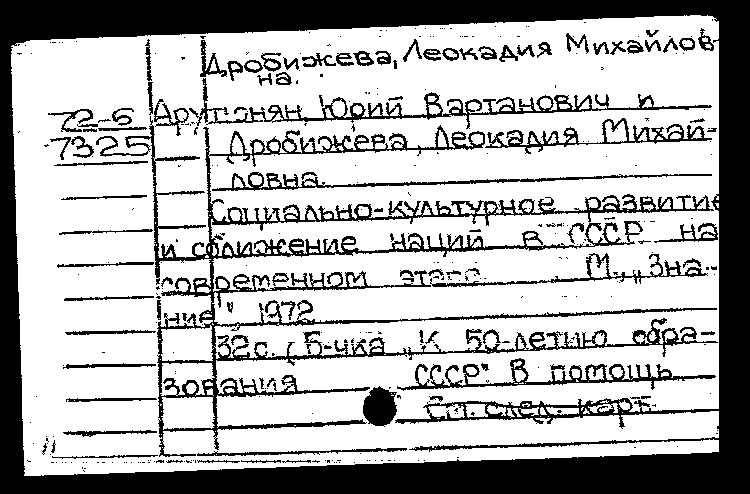 Дробижева, Леокадия Михайлов-
на.
72-6 Арутюнян, Юрий Вартанович и
7325 Дробижева, Леокадия Михай-
ловна.
Социально-культурное развитие
и сближение наций в СССР на
современном этапе. М., „Зна-
ние", 1972
32с. (Б-чка „К 50-летию обра-
зования СССР". В помощь
См. след. карт.